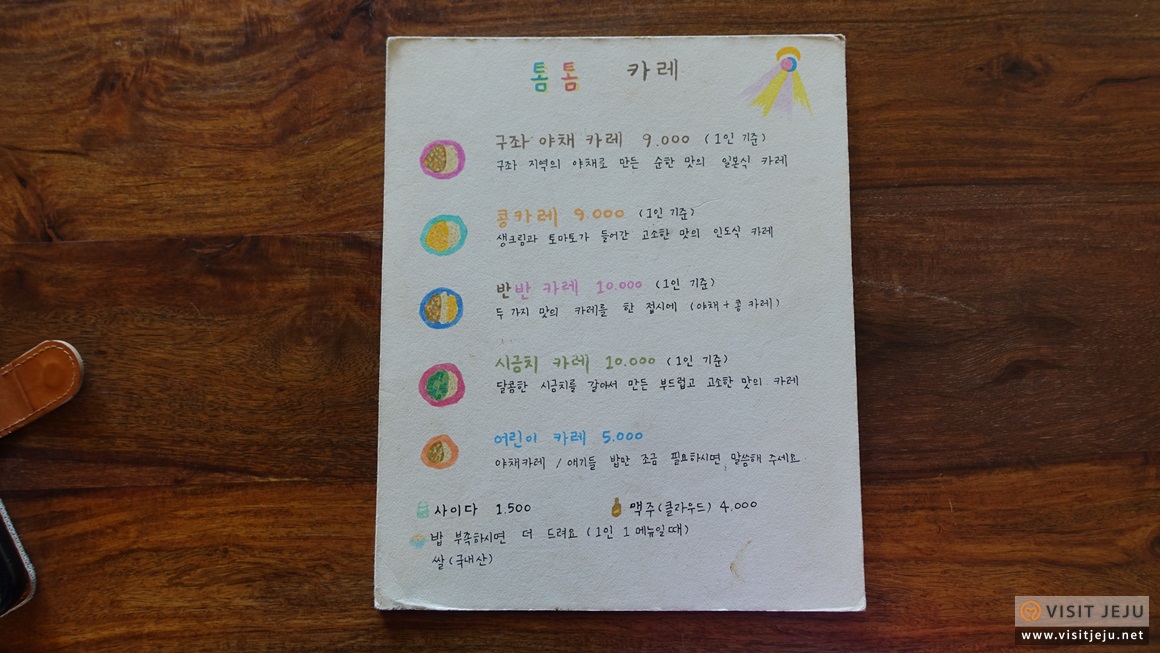 톰톰 카레
구좌 야채 카레 9.000 (1인 기준)
구좌 지역의 야채로 만든 순한 맛의 일본식 카레
콩카레 9.000 (1인 기준)
생크림과 토마토가 들어간 고소한 맛의 인도식 카레
반반 카레 10.000 (1인 기준)
두가지 맛의 카레를 한 접시에 (야채+콩 카레)
시금치 카레 10.000 (1인 기준)
달콤한 시금치를 갈아서 만든 부드럽고 고소한 맛의 카레
어린이 카레 5.000
야채카레 / 애기들 밥만 조금 필요하시면, 말씀해 주세요.
사이다 1.500 맥주(클라우드) 4.000
밥 부족하시면 더 드려요 (1인 1메뉴일때)
쌀(국내산)
VISIT JEJU
www.visitjeju.net